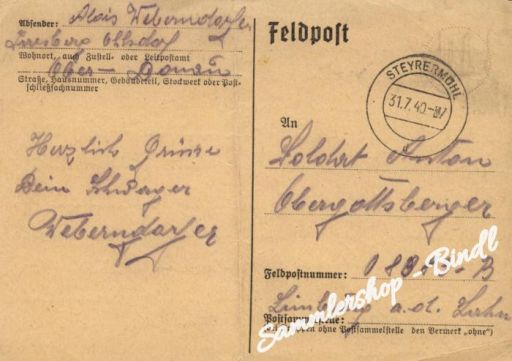 Absender: Alois Weberndorfer
Ohlsdorf
Wohnort, auch Zustell- oder Leitpostamt
Ober-Donau
Straße, Hausnummer, Gebäudeteil, Stockwerk oder Post-
schließfachnummer
Herzlich Grüsse
Dein Schwager
Weberndorfer
Feldpost
STEYRERMÜHL
31.7.40.
An
Soldat Anton
Obergottsberger
Feldpostnummer:
Limburg a.d. Lahn
Postsammelstelle:
ohne Postsammelstelle den Vermerk „ohne")
Sammlershop - Bindl